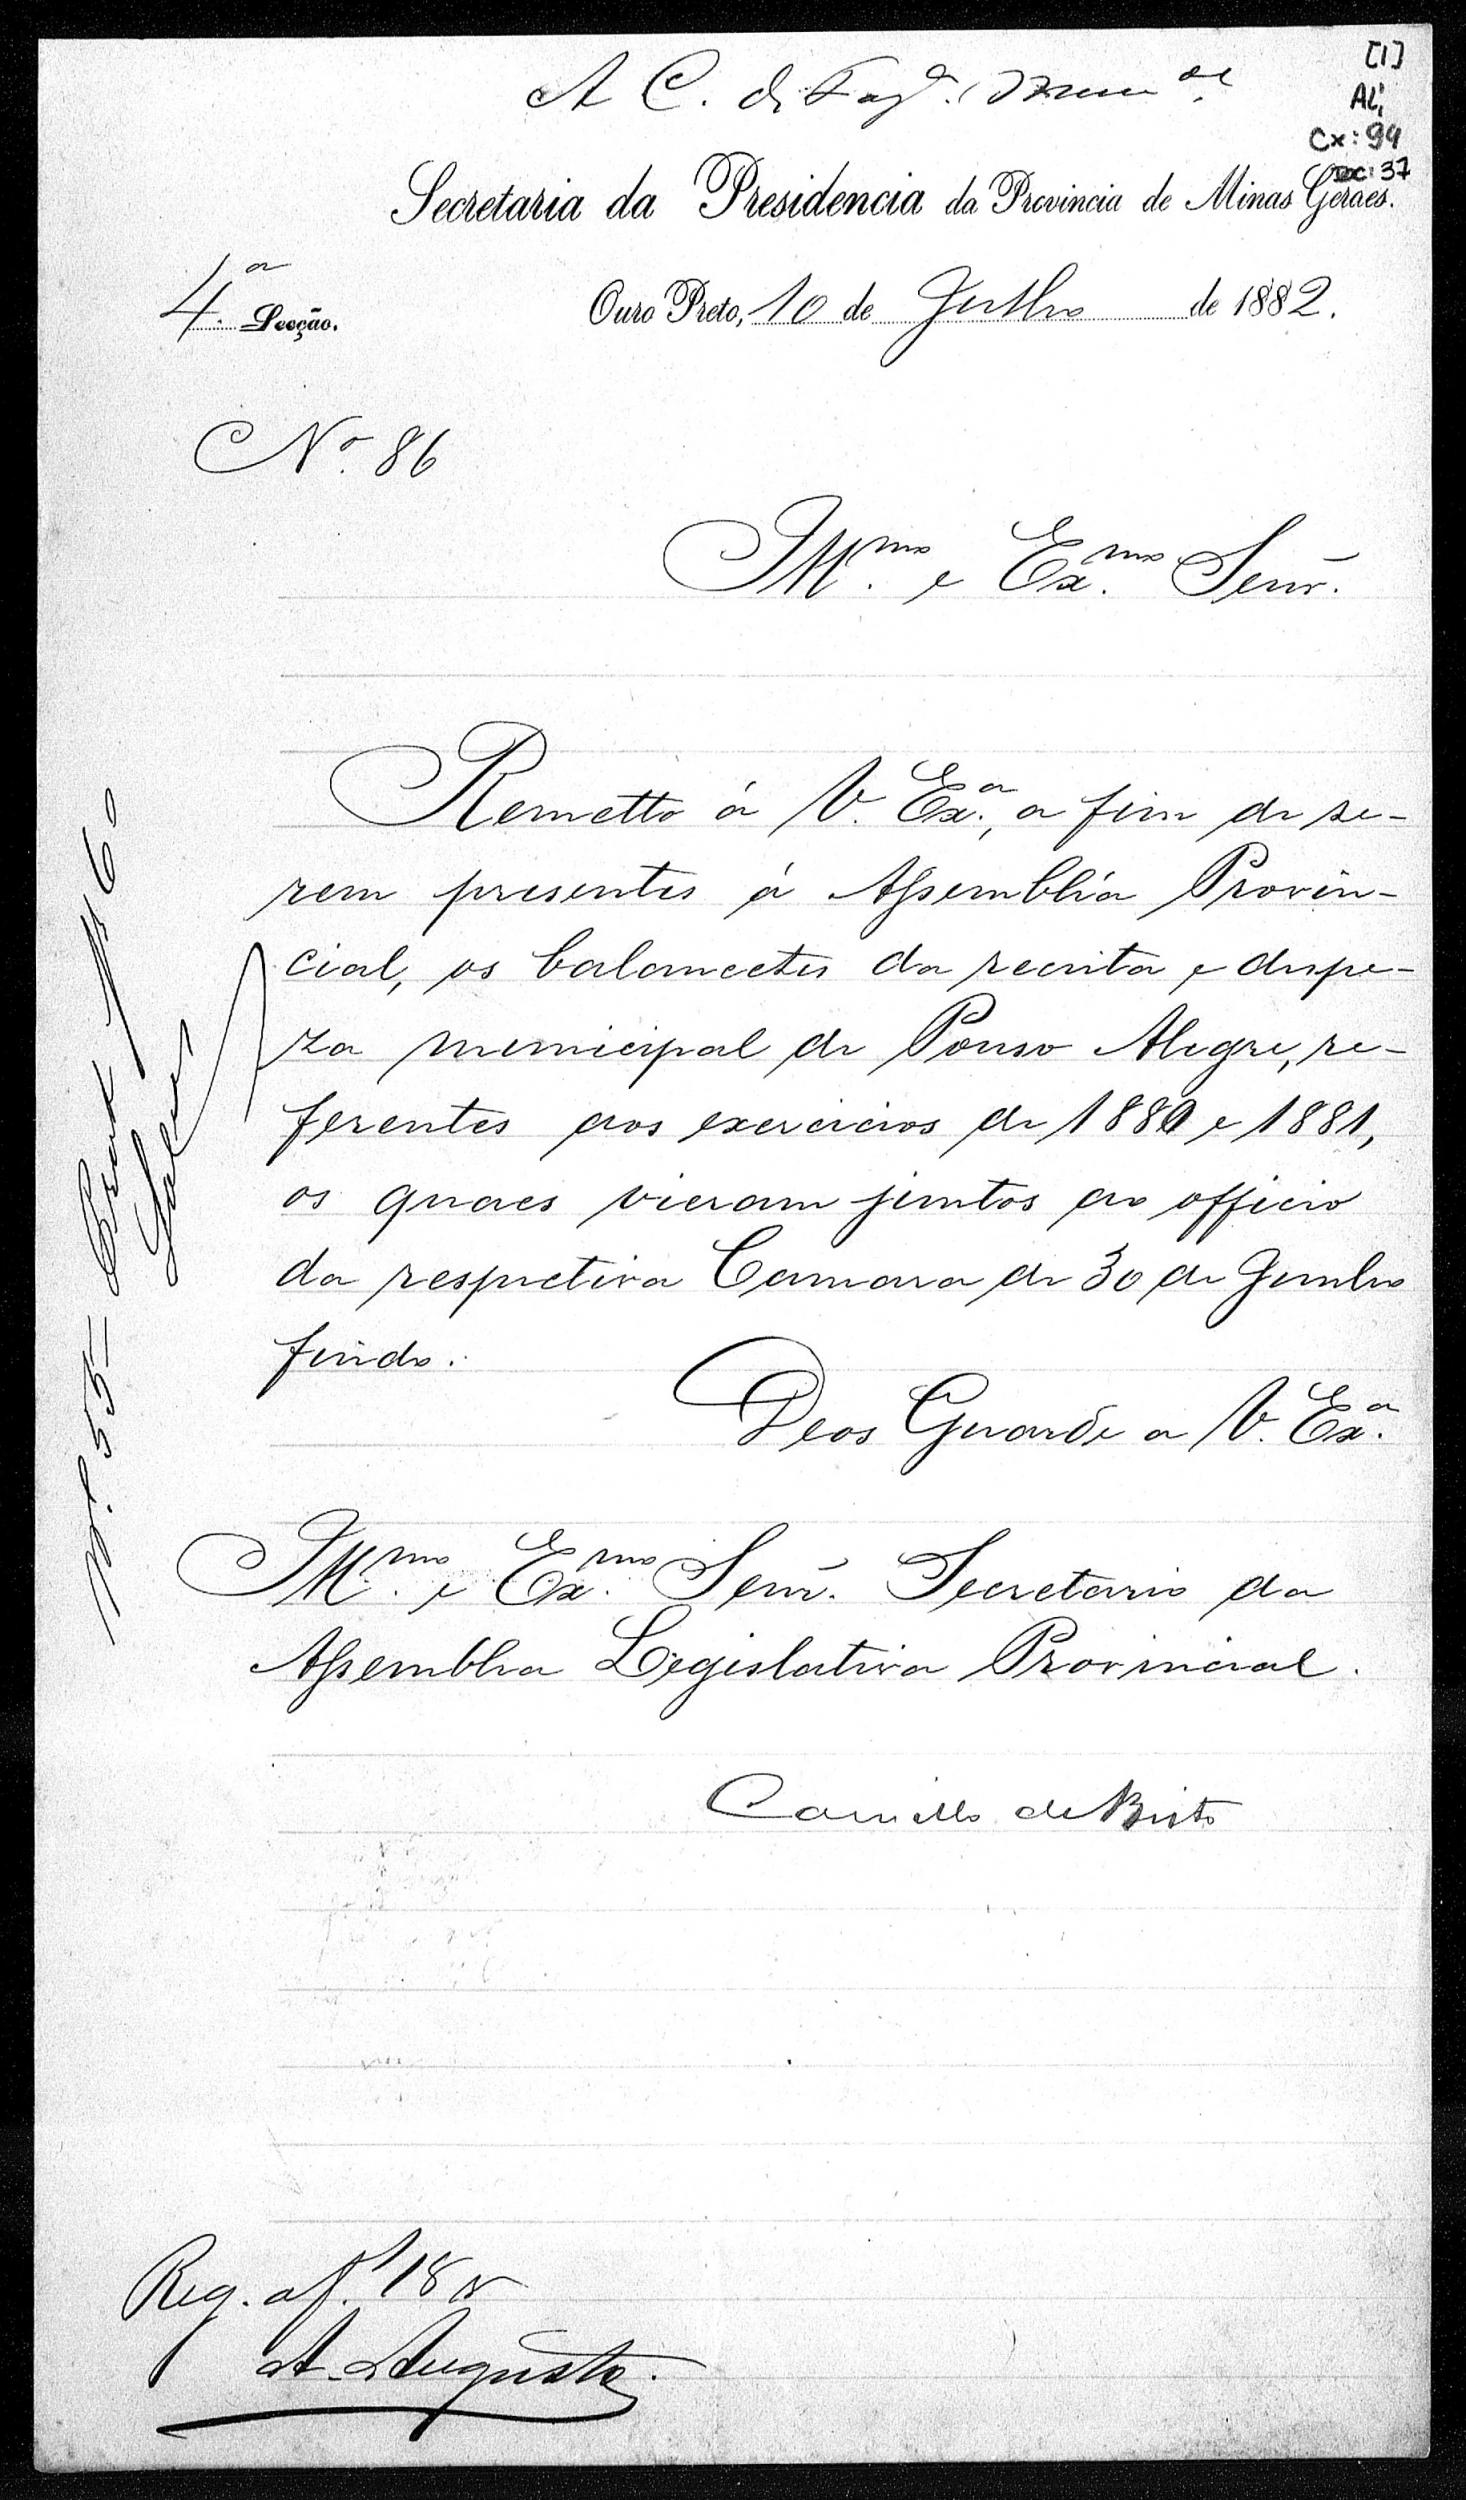 [1]
AL;
Cx: 94
Doc: 37
A C. de Faz.da Mun.al
Secretaria da Presidencia da Provincia de Minas Geraes.
4.a Secção.
Ouro Preto, 10 de Julho de 1882.
N.o 86
Ill.mo e Ex.mo Senr.
Remetto á V. Ex.a, a fim de se-
rem presentes á Assembléa Provin-
cial, os balancetes da receita e despe-
za municipal de Pouso Alegre, re-
ferentes aos exercicios de 1880 e 1881,
os quaes vieram juntos ao officio
da respectiva Camara de 30 de Junho
findo.
Deos Guarde a V. Ex.a
Ill.mo e Ex.mo Senr. Secretario da
Assembléa Legislativa Provincial.
Camillo de Brito
N.o 55
Reg. a f. 18 v
A. Augusto.